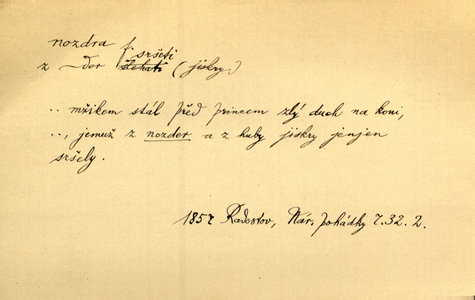 nozdra f.
sršeti
z —der žehati (jiskry)
.. mžikem stál před princem zlý duch na koni,
.., jemuž z nozder a z huby jiskry jenjen
sršely.
1857 Radostov, Nár. pohádky 7.32.2.